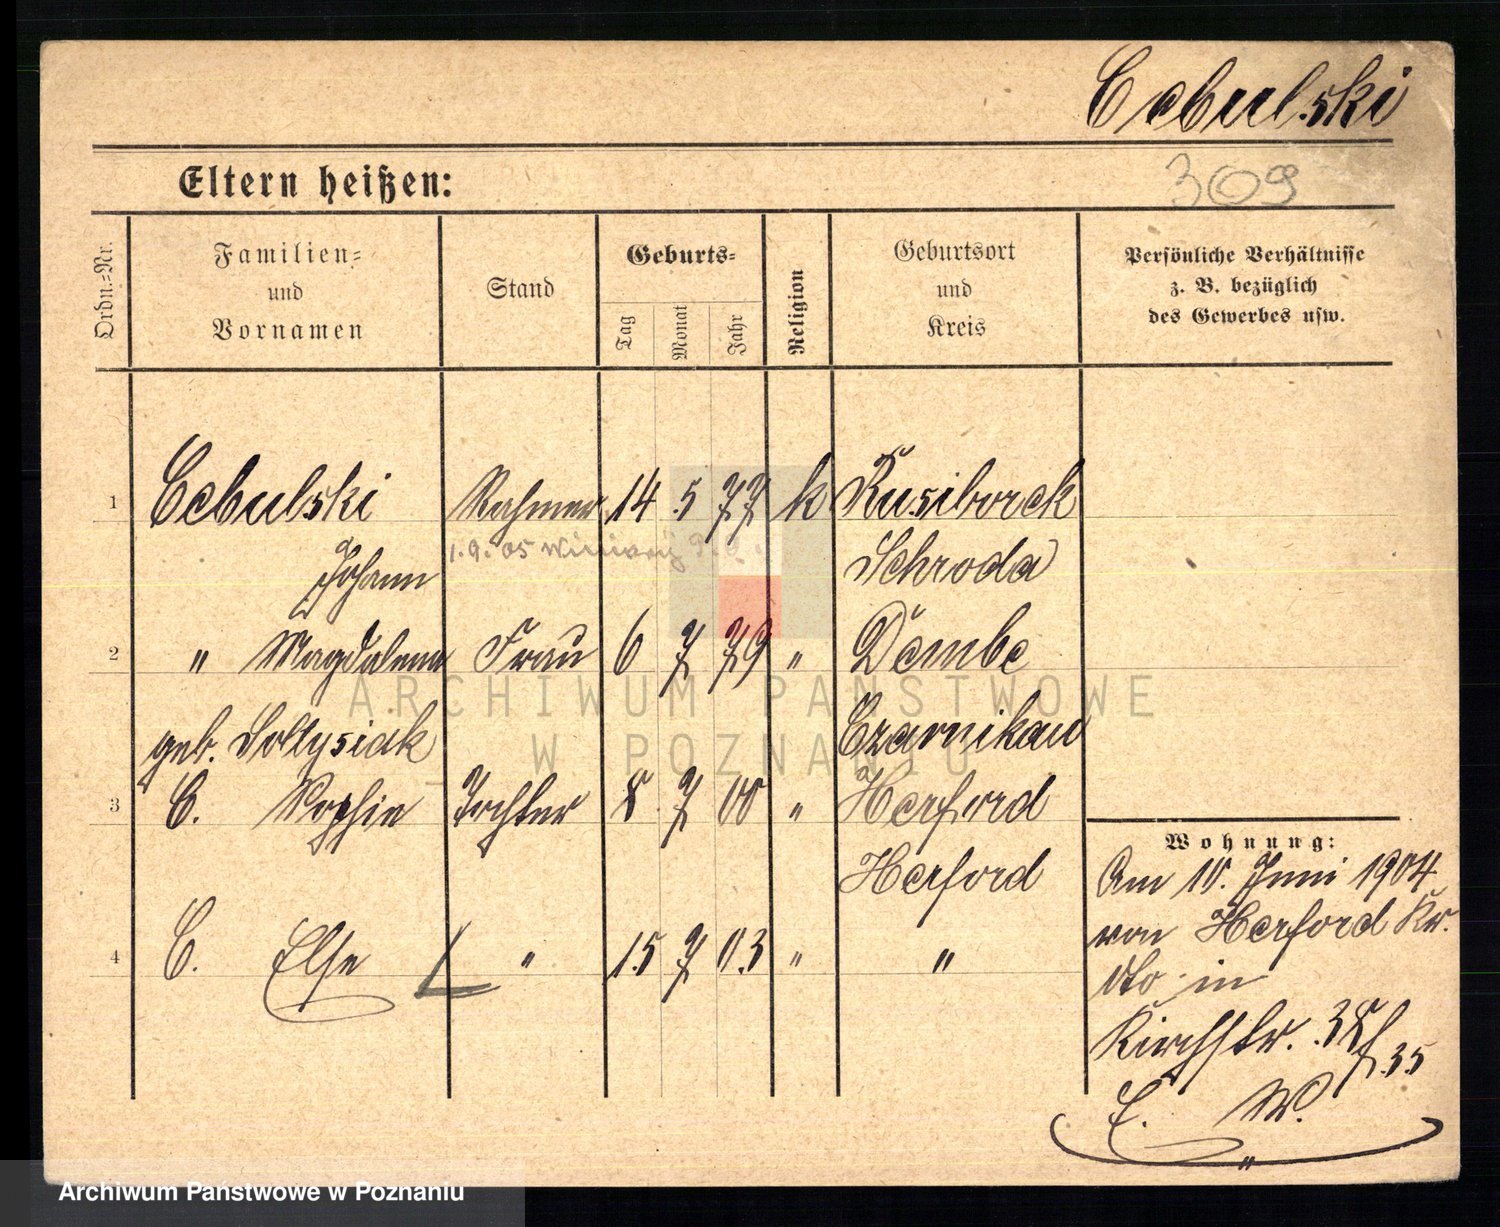 Cebulski
309
Eltern heißen:
Ordn.-Nr.
Familien-
und
Vornamen
Stand
Geburts-
Tag
Monat
Jahr
Religion
Geburtsort
und
Kreis
Persönliche Verhältnisse
z. B. bezüglich
des Gewerbes usw.
1 Cebulski Rahmer 14 5 77 k Rusiborek
Johann 1.9.05 Schroda
2 " Magdalena Frau 6 7 79 " Dembe
geb. Czarnikau
3 C. Sophie Tochter 8 7 00 " Herford
Herford
4 C. Else " 15 7 03 " "
Wohnung:
Am 10. Juni 1904
von Herford Kr.
dto in
Kirchstr. 38
35
E. W.
"
ARCHIWUM PAŃSTWOWE
W POZNANIU
Archiwum Państwowe w Poznaniu